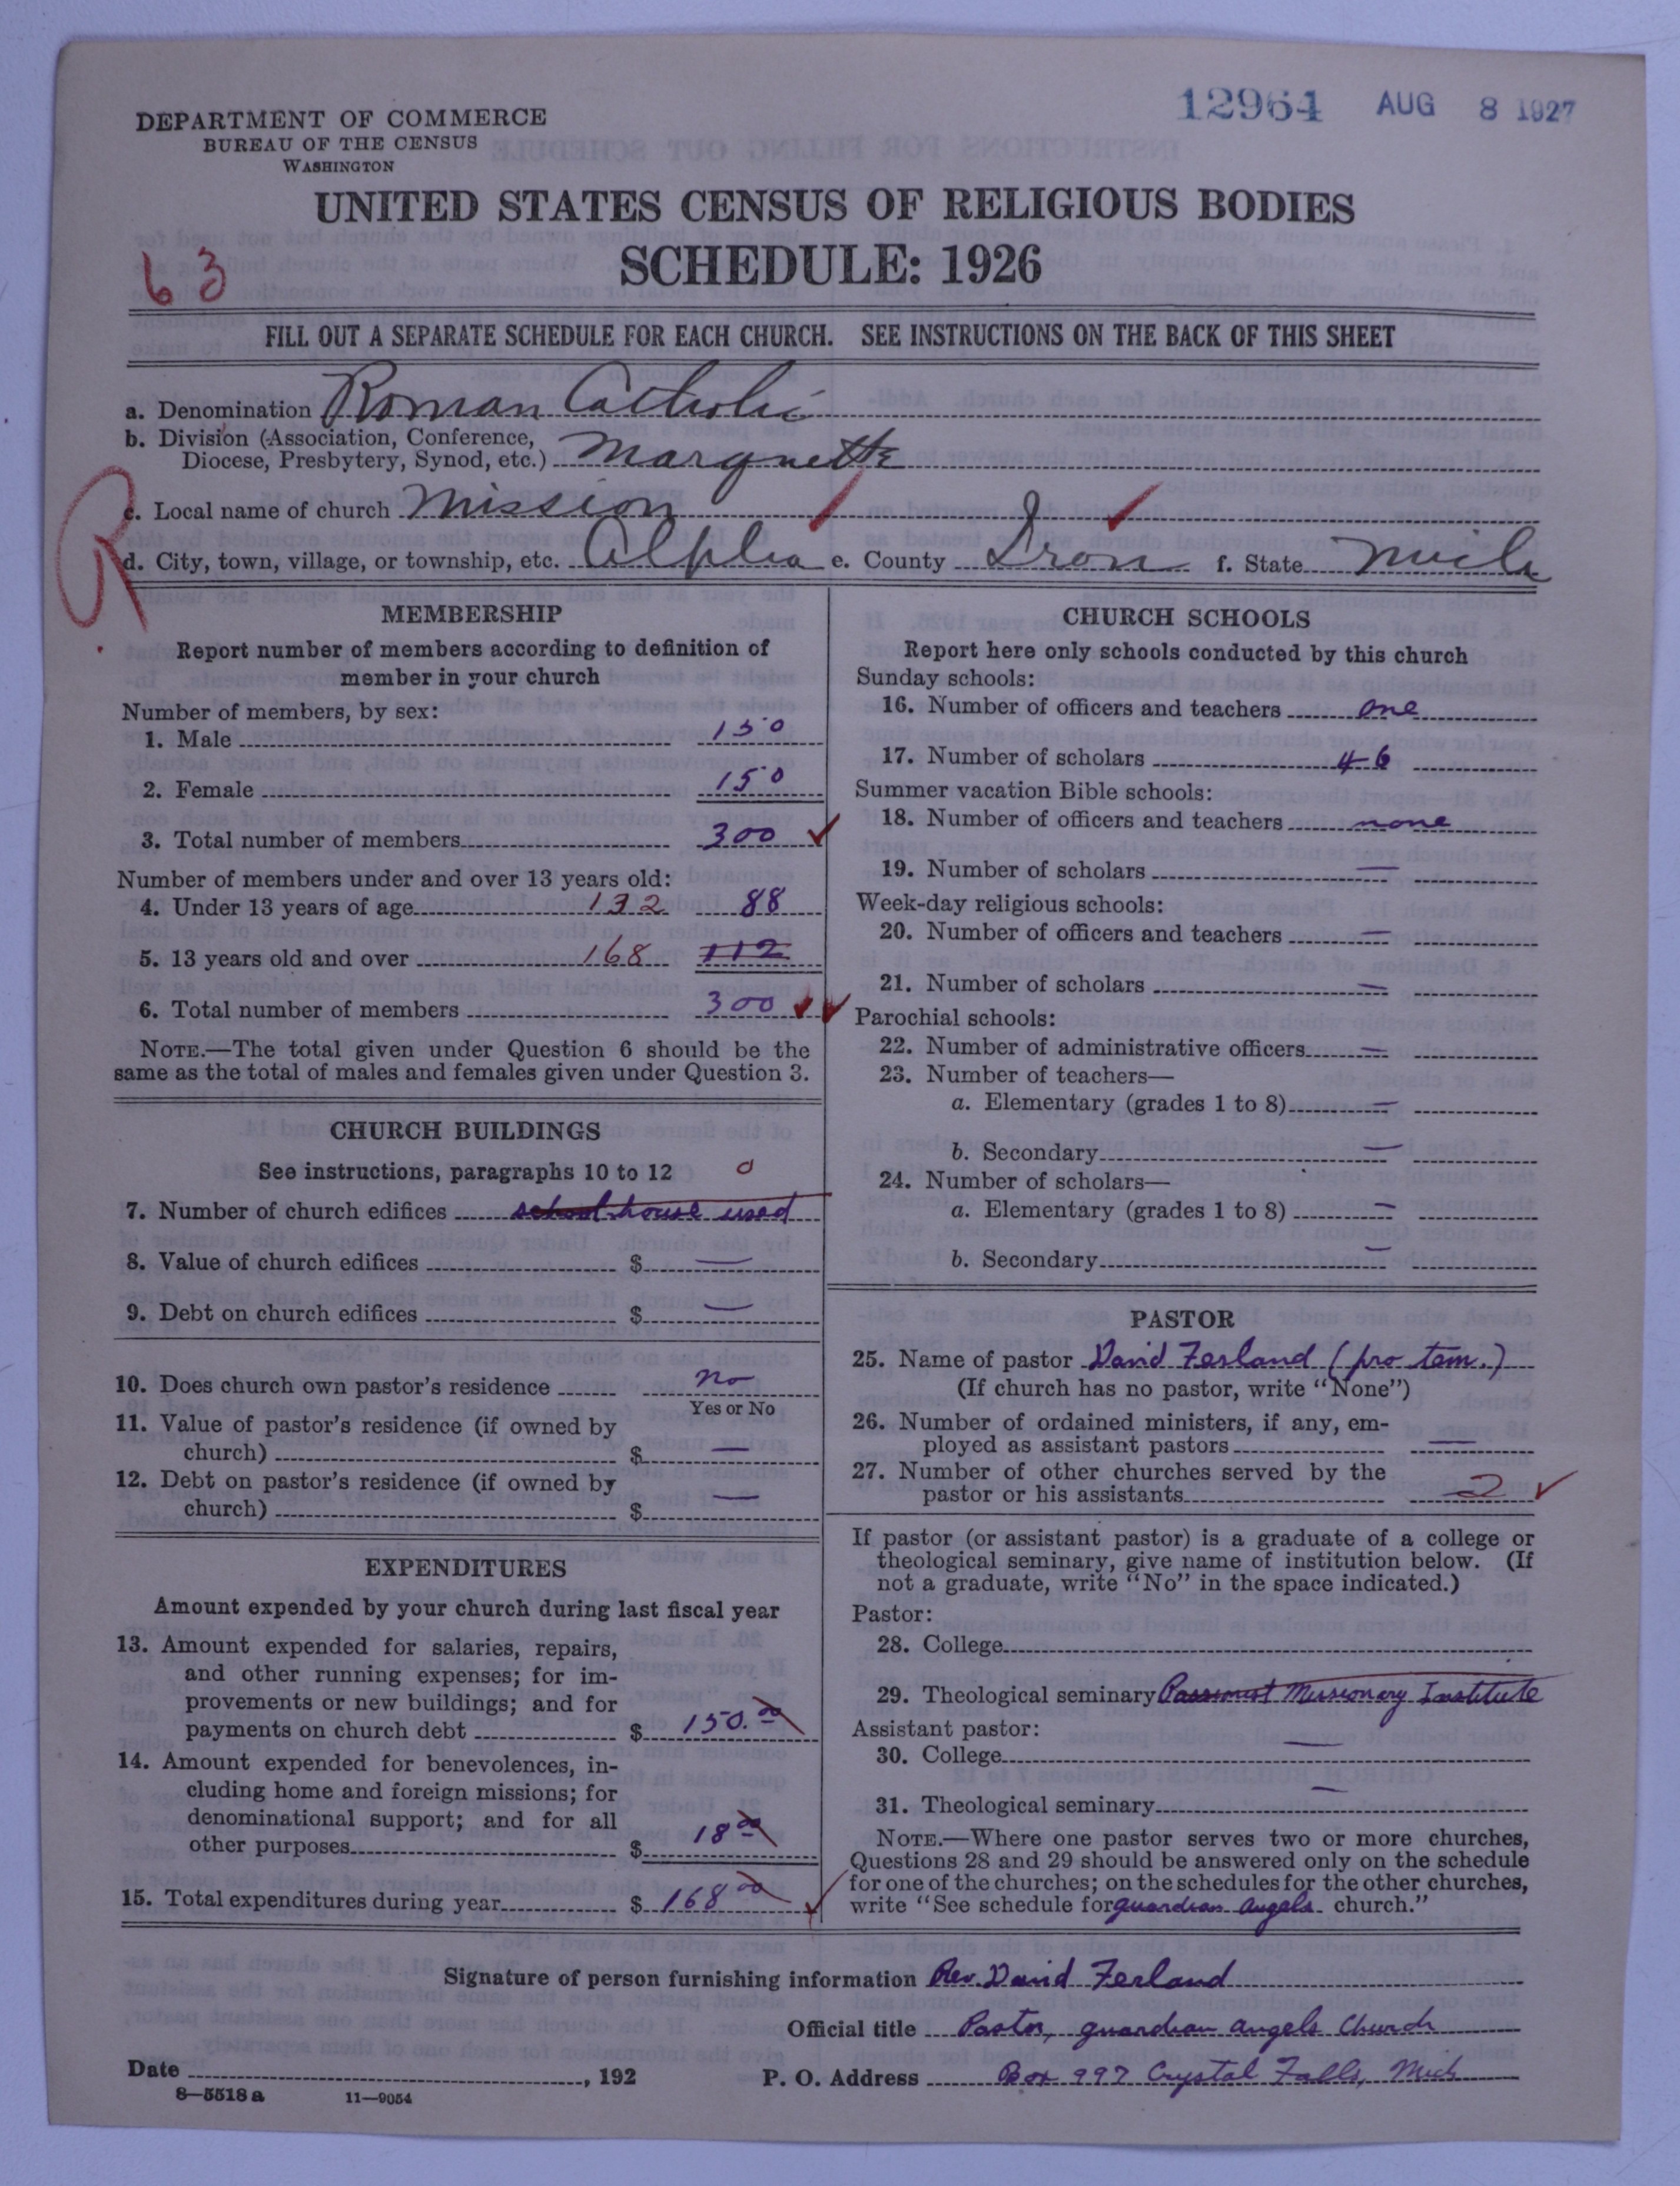 12964 AUG 8 1927
DEPARTMENT OF COMMERCE
BUREAU OF THE CENSUS
WASHINGTON
UNITED STATES CENSUS OF RELIGIOUS BODIES
SCHEDULE: 1926
63
FILL OUT A SEPARATE SCHEDULE FOR EACH CHURCH. SEE INSTRUCTIONS ON THE BACK OF THIS SHEET
a. Denomination Roman Catholic
b. Division (Association, Conference,
Diocese, Presbytery, Synod, etc.) Marquette
R
c. Local name of church Mission
d. City, town, village, or township, etc. Alpha e. County Iron f. State Mich
MEMBERSHIP
Report number of members according to definition of
member in your church
Number of members, by sex:
1. Male 150
2. Female 150
3. Total number of members 300
Number of members under and over 13 years old:
4. Under 13 years of age 132 88
5. 13 years old and over 168 112
6. Total number of members 300
NOTE.—The total given under Question 6 should be the
same as the total of males and females given under Question 3.
CHURCH BUILDINGS
See instructions, paragraphs 10 to 12 0
7. Number of church edifices school house used
8. Value of church edifices $ —
9. Debt on church edifices $ —
10. Does church own pastor's residence no
Yes or No
11. Value of pastor's residence (if owned by
church) $ —
12. Debt on pastor's residence (if owned by
church) $ —
EXPENDITURES
Amount expended by your church during last fiscal year
13. Amount expended for salaries, repairs,
and other running expenses; for im-
provements or new buildings; and for
payments on church debt $ 150.00
14. Amount expended for benevolences, in-
cluding home and foreign missions; for
denominational support; and for all
other purposes $ 18 00
15. Total expenditures during year $ 168 00
CHURCH SCHOOLS
Report here only schools conducted by this church
Sunday schools:
16. Number of officers and teachers one
17. Number of scholars 46
Summer vacation Bible schools:
18. Number of officers and teachers none
19. Number of scholars —
Week-day religious schools:
20. Number of officers and teachers —
21. Number of scholars —
Parochial schools:
22. Number of administrative officers —
23. Number of teachers—
a. Elementary (grades 1 to 8) —
b. Secondary —
24. Number of scholars—
a. Elementary (grades 1 to 8) —
b. Secondary —
PASTOR
25. Name of pastor David Ferland (pro tem.)
(If church has no pastor, write "None")
26. Number of ordained ministers, if any, em-
ployed as assistant pastors —
27. Number of other churches served by the
pastor or his assistants 2
If pastor (or assistant pastor) is a graduate of a college or
theological seminary, give name of institution below. (If
not a graduate, write "No" in the space indicated.)
Pastor:
28. College
29. Theological seminary Passionist Missionary Institute
Assistant pastor:
30. College —
31. Theological seminary —
NOTE.—Where one pastor serves two or more churches,
Questions 28 and 29 should be answered only on the schedule
for one of the churches; on the schedules for the other churches,
write "See schedule for guardian angels church."
Signature of person furnishing information Rev. David Ferland
Official title Pastor, guardian angels Church
Date , 192 P. O. Address Box 997 Crystal Falls, Mich
8—5518 a 11—9054